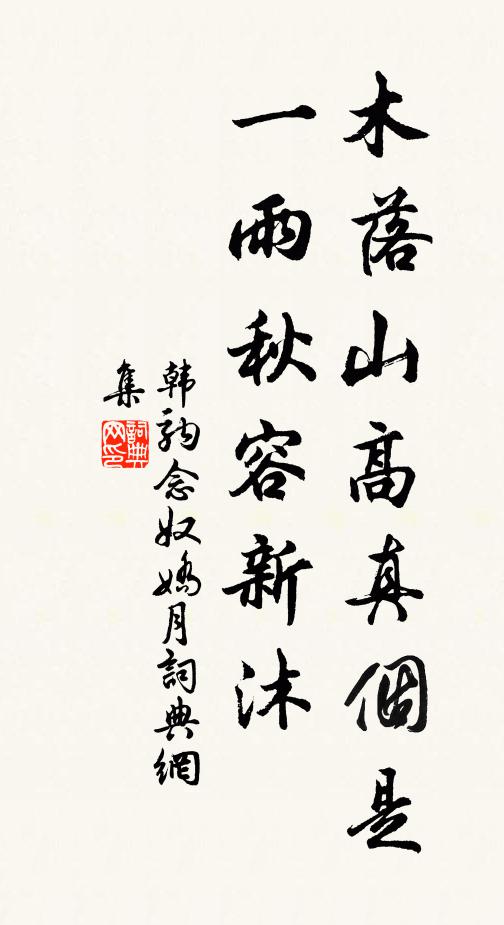 木落山高真個是
一雨秋容新沐
韩驹念奴嬌月詞典網
集
詞典
网印